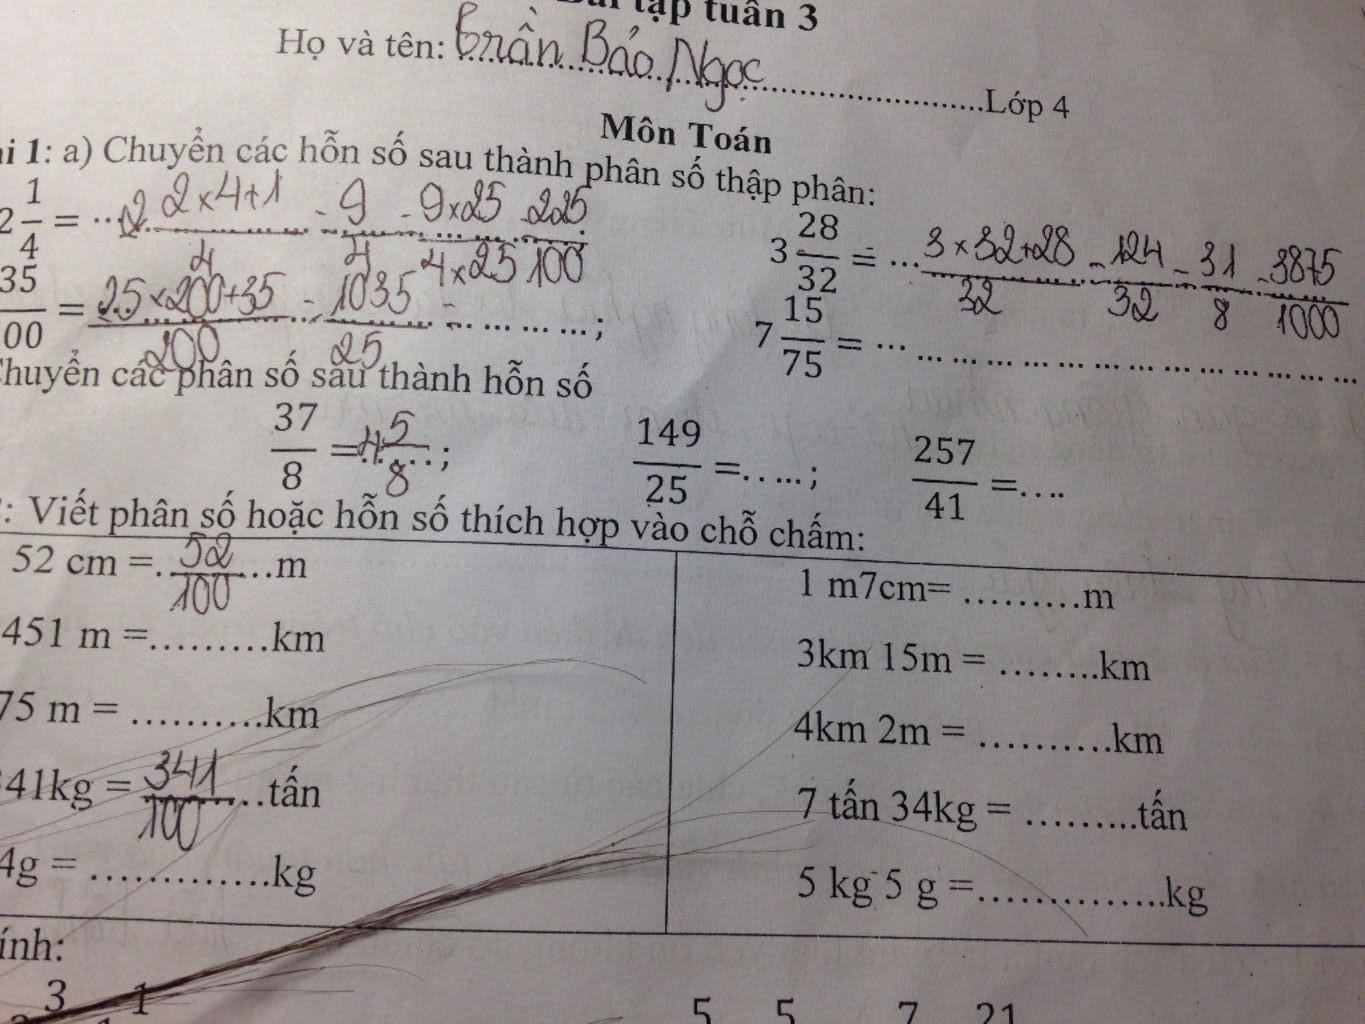 tập tuần 3
Họ và tên: Trần Bảo Ngọc Lớp 4
Môn Toán
1: a) Chuyển các hỗn số sau thành phân số thập phân:
2 1/4 = 2×4+1/4 = 9/4 = 9×25/4×25 = 225/100
3 28/32 = 3×32+28/32 = 124/32 = 31/8 = 3875/1000
35/00 = 25×200+35/200 = 1035/25 = ............;
7 15/75 = ..........................................
Chuyển các phân số sau thành hỗn số
37/8 = 4 5/8; 149/25 =.....; 257/41 =....
: Viết phân số hoặc hỗn số thích hợp vào chỗ chấm:
52 cm = 52/100 m
1 m7cm= .........m
451 m =.........km
3km 15m = ........km
75 m = ..........km
4km 2m = ..........km
341kg = 341/100 tấn
7 tấn 34kg = .........tấn
4g = .............kg
5 kg 5 g =..............kg
ính:
3 1 5 5 7 21